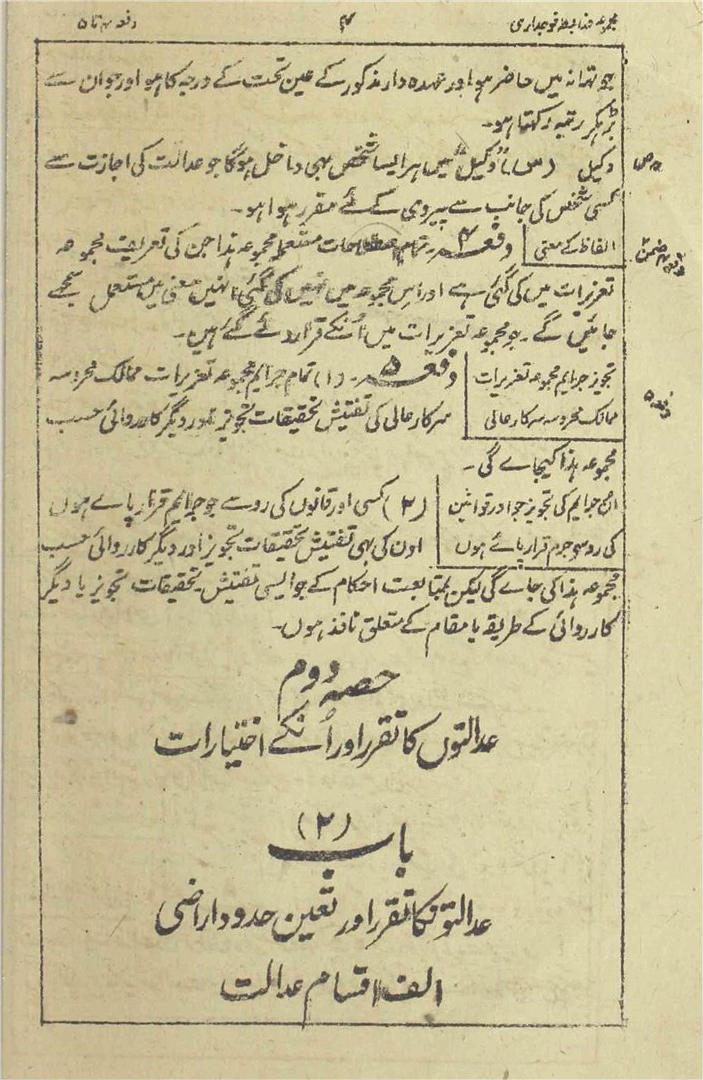 مجموعہ ضابطہ فوجداری ۴ دفعہ ۴ تا ۵
جو تھانہ میں حاضر ہو اور عہدہ دار مذکور کے عین تحت کے درجہ کا ہو اور جوان سے
بڑہکر رتبہ رکھتا ہو۔
وکیل (س) "وکیل" میں ہر ایسا شخص بھی داخل ہوگا جو عدالت کی اجازت سے
کسی شخص کی جانب سے پیروی کے لئے مقرر ہوا ہو۔
الفاظ کے معنی دفعہ ۴۔ تمام اصطلاحات مستعملہ مجموعہ ہذا جن کی تعریف مجموعہ
تعزیرات میں کی گئی ہے اور اس مجموعہ میں نہیں کی گئی اونہیں معنی میں مستعمل سمجھے
جائیں گے۔ جو مجموعہ تعزیرات میں اُنکے قرار دئے گئے ہیں۔
تجویز جرایم مجموعہ تعزیرات دفعہ ۵۔ (۱) تمام جرایم مجموعہ تعزیرات ممالک محروسہ
ممالک محروسہ سرکار عالی سرکار عالی کی تفتیش تحقیقات تجویز اور دیگر کارروائی حسب
مجموعہ ہذا کیجاے گی۔
ان جرایم کی تجویز جو اور قوانین (۲) کسی اور قانون کی رو سے جو جرایم قرار پاے ہوں
کی رو سے جرم قرار پاے ہوں اون کی بھی تفتیش تحقیقات تجویز اور دیگر کارروائی حسب
مجموعہ ہذا کی جاے گی لیکن بمتابعت احکام کے جو ایسی تفتیش۔ تحقیقات تجویز یا دیگر
کارروائی کے طریقہ یا مقام کے متعلق نافذ ہوں۔
حصہ دوم
عدالتوں کا تقرر اور اُنکے اختیارات
باب (۲)
عدالتوں کا تقرر اور تعین حدود اراضی
الف اقسام عدالت